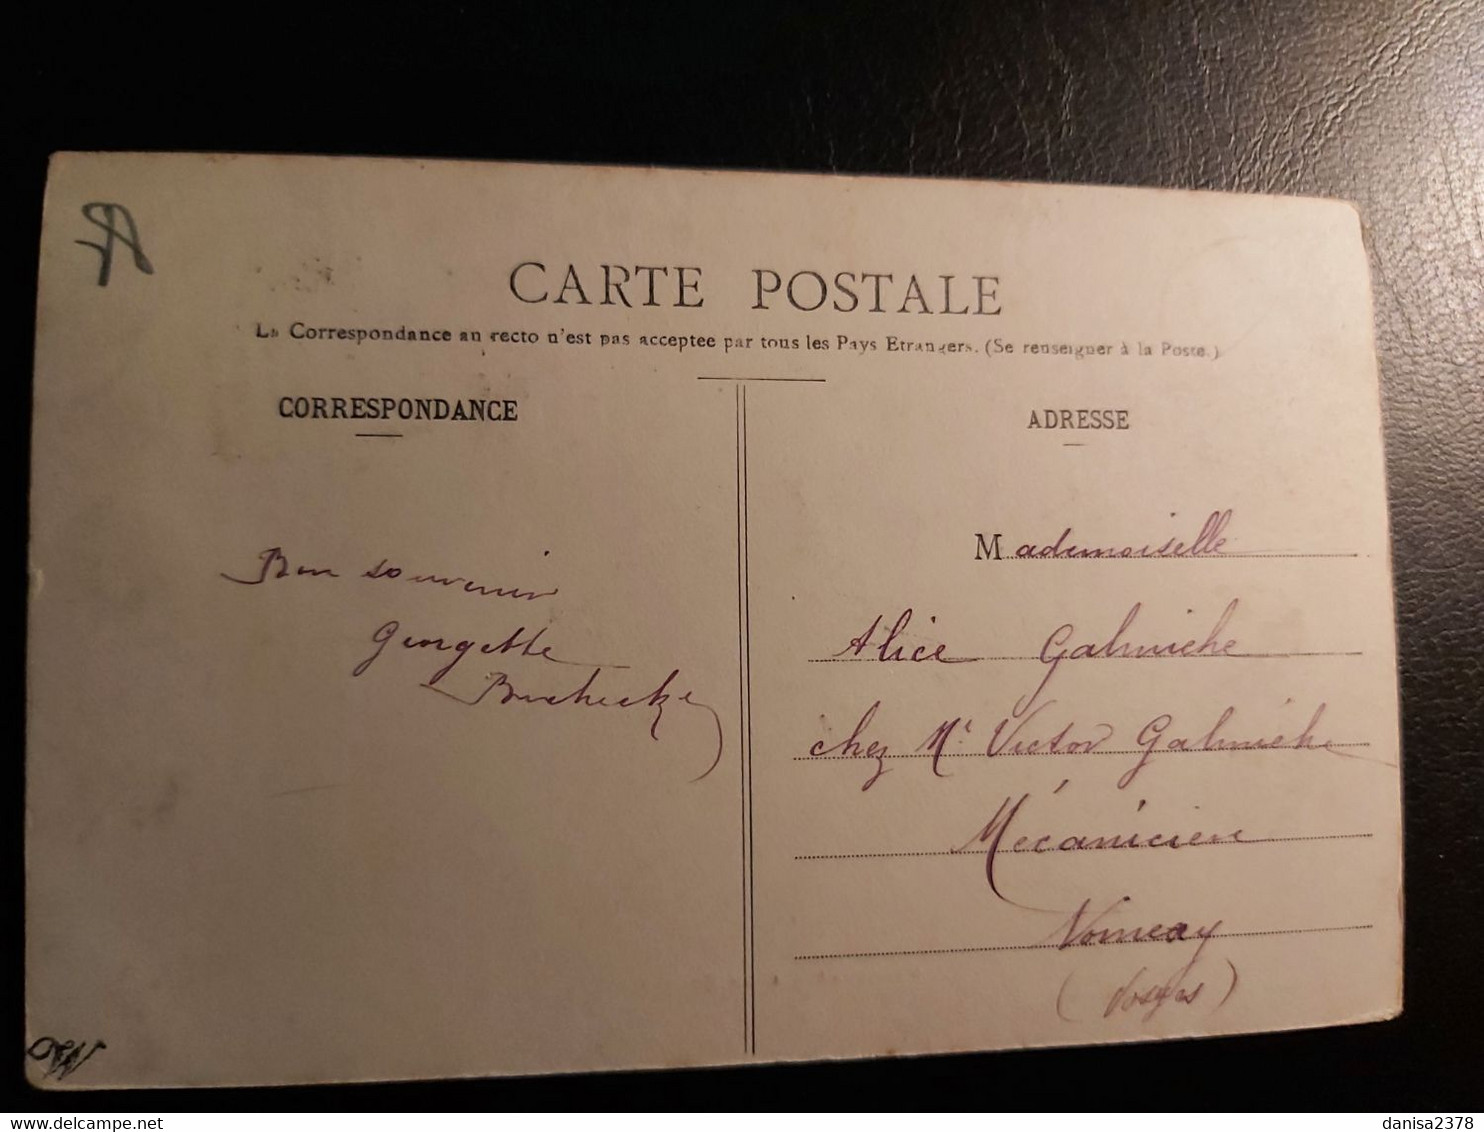 CARTE POSTALE
La Correspondance au recto n'est pas acceptee par tous les Pays Etrangers. (Se renseigner à la Poste.)
CORRESPONDANCE
ADRESSE
Bon souvenir
Georgette
Mademoiselle
Alice Galmiche
chez Mr Victor Galmiche
Mécanicien
Nomexy
(Vosges)
danisa2378